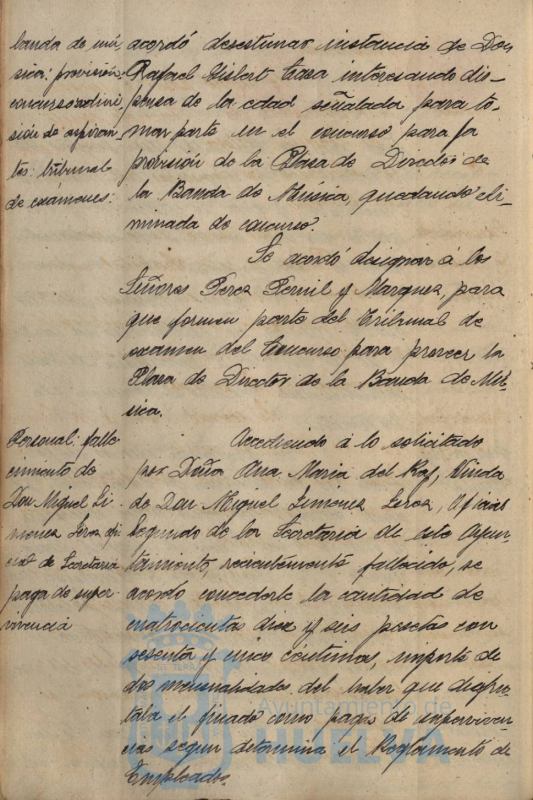 banda de mú-
sica: provisión:
concurso: admi
sión de aspiran
tes: tribunal
de exámenes:
acordó desestimar instancia de Don
Rafael Gisbert Casa interesando dis-
pensa de la edad señalada para to-
mar parte en el concurso para la
provisión de la Plaza de Director de
la Banda de Música, quedando eli-
minada de concurso.
Se acordó designar á los
Señores Perez Pernil y Marquez, para
que formen parte del Tribunal de
examen del Concurso para proveer la
Plaza de Director de la Banda de Mú-
sica.
Personal: falle
cimiento de
Don Miguel Ji-
menez ofi
cial de Secretaria
paga de super-
vivencia
Accediendo á lo solicitado
por Doña Ana Maria del Viuda
de Don Miguel Jimenez Oficial
Segundo de la Secretaria de este Ayun-
tamiento, recientemente fallecido, se
acordó concederle la cantidad de
cuatrocientas diez y seis pesetas con
sesenta y cinco céntimos, importe de
dos mensualidades del haber que disfru-
taba el finado como paga de superviven-
cias segun determina el Reglamento de
Empleados.
Ayuntamiento de
HUELVA